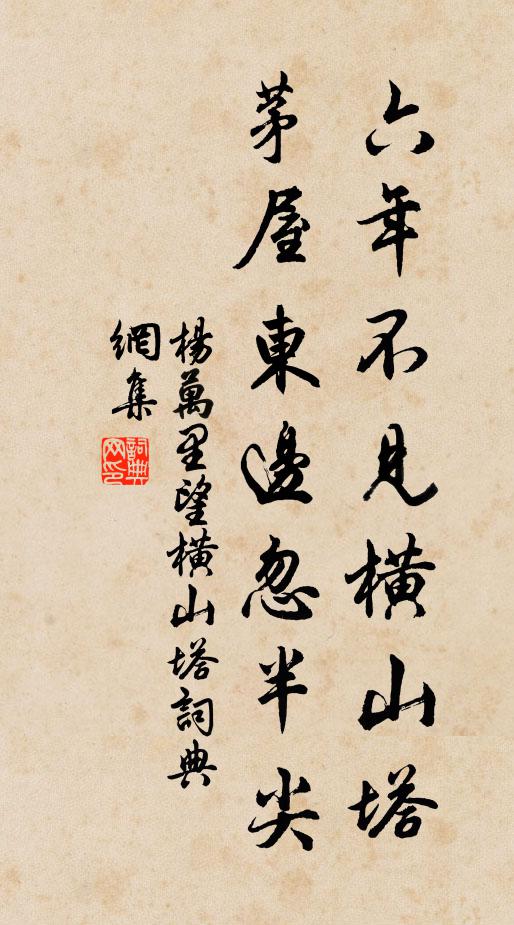 六年不見橫山塔
茅屋東邊忽半尖
楊萬里望橫山塔詞典
網集
詞典
网印